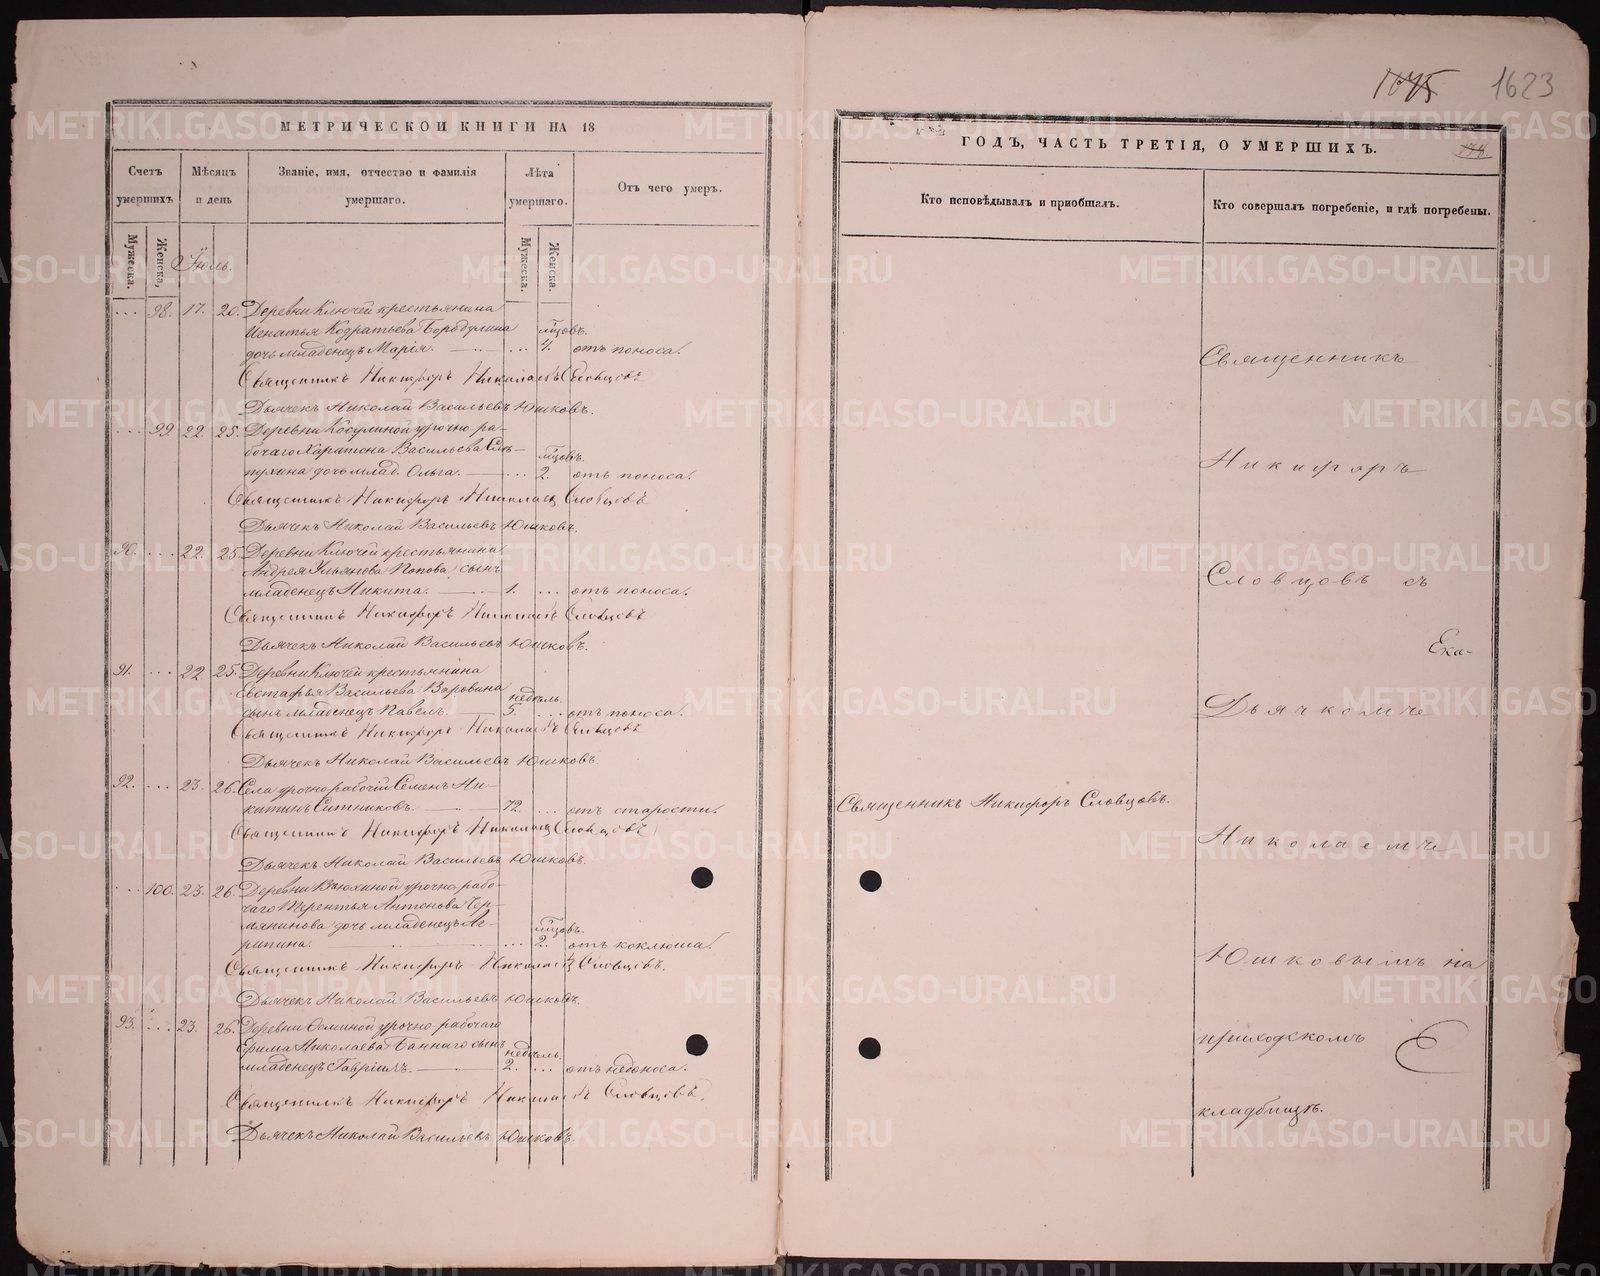 1675 1623
МЕТРИЧЕСКОЙ КНИГИ НА 18
Счетъ умершихъ
Мѣсяцъ и день
Званіе, имя, отчество и фамилія умершаго.
Лѣта умершаго.
Отъ чего умеръ.
Мужеска.
Женска,
Мужеска.
Женска.
Іюль.
... 98. 17. 20. Деревни Ключей крестьянина
Игнатья Кодратьева Бородулина мѣсцовъ.
дочь младенецъ Марія. ... 4. отъ поноса.
Священникъ Никифоръ Николаевъ Словцовъ
Дьячекъ Николай Васильевъ Юшковъ.
... 99. 22. 25. Деревни Косулиной урочно-ра-
бочаго Харитона Васильева мѣсцовъ.
дочь млад. Ольга. ... 2. отъ поноса.
Священникъ Никифоръ Николаевъ Словцовъ
Дьячекъ Николай Васильевъ Юшковъ.
90. ... 22. 25. Деревни Ключей крестьянина
Андрея Ульянова Попова сынъ
младенецъ Никита. 1. ... отъ поноса.
Священникъ Никифоръ Николаевъ Словцовъ
Дьячекъ Николай Васильевъ Юшковъ.
91. ... 22. 25. Деревни Ключей крестьянина
Евстафья Васильева Варовина недѣль.
сынъ младенецъ Павелъ. 5. ... отъ поноса.
Священникъ Никифоръ Николаевъ Словцовъ
Дьячекъ Николай Васильевъ Юшковъ.
92. ... 23. 26. Села урочно рабочій Семенъ Ни-
китинъ Ситниковъ. 72. ... отъ старости.
Священникъ Никифоръ Николаевъ Словцовъ
Дьячекъ Николай Васильевъ Юшковъ.
... 100. 23. 26. Деревни Вьюхиной урочно рабо-
чаго Терентья Антонова Чер-
мянинова дочь младенецъ Аг- мѣсцовъ.
рипина. ... 2. отъ коклюша.
Священникъ Никифоръ Николаевъ Словцовъ.
Дьячекъ Николай Васильевъ Юшковъ.
93. ... 23. 26. Деревни урочно-рабочаго
Ефима Николаева Баннаго сынъ недѣль.
младенецъ Гавріилъ. 2. ... отъ недоноса.
Священникъ Никифоръ Николаевъ Словцовъ.
Дьячекъ Николай Васильевъ Юшковъ.
ГОДЪ, ЧАСТЬ ТРЕТІЯ, О УМЕРШИХЪ.
Кто исповѣдывалъ и пріобщалъ.
Кто совершалъ погребеніе, и гдѣ погребены.
Священникъ
Никифоръ
Словцовъ съ
Ека-
Дьячкомъ
Священникъ Никифоръ Словцовъ.
Николаемъ
Юшковымъ на
приходскомъ
кладбищѣ.
METRIKI.GASO-URAL.RU